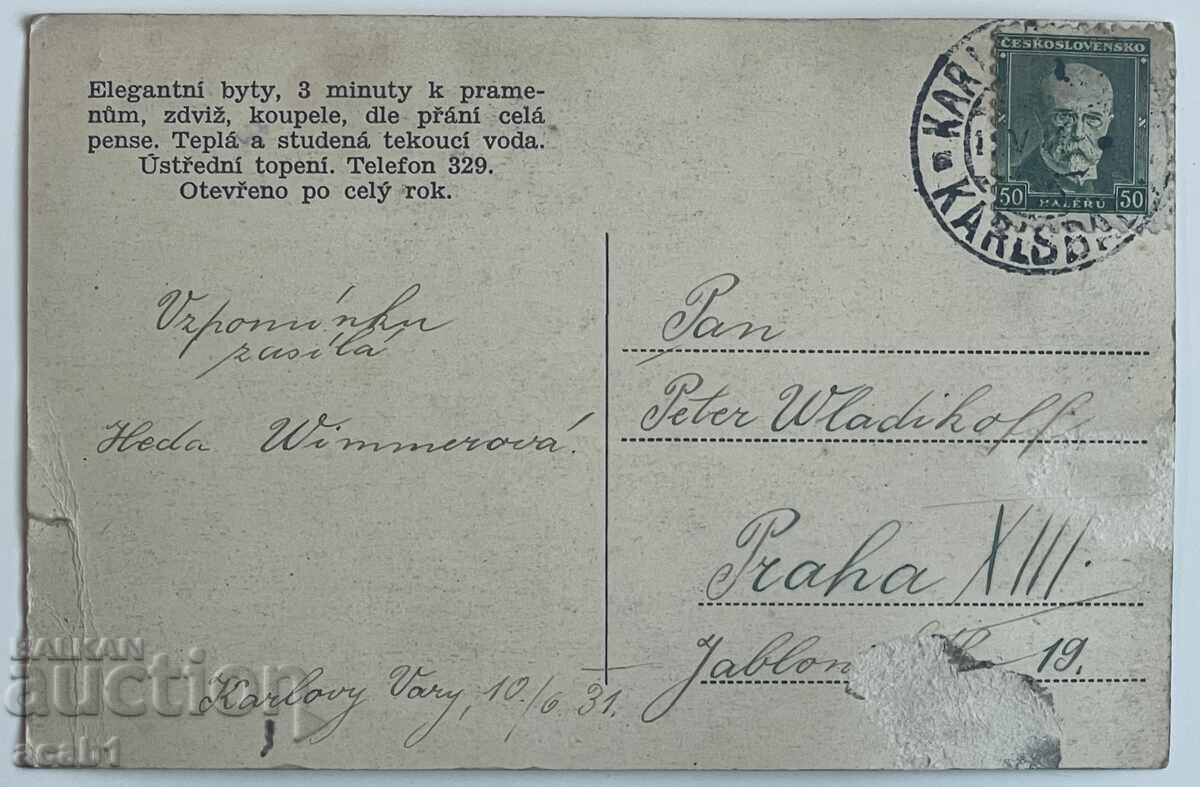 Elegantní byty, 3 minuty k prame-
nům, zdviž, koupele, dle přání celá
pense. Teplá a studená tekoucí voda.
Ústřední topení. Telefon 329.
Otevřeno po celý rok.
ČESKOSLOVENSKO
50 HALÉŘŮ 50
KARLSBAD
Vzpomínku
zasílá
Heda Wimmerová.
Karlovy Vary, 10./6.31.
Pan
Peter Wladikoff
Praha XIII.
19.
BALKAN
auction
acab1